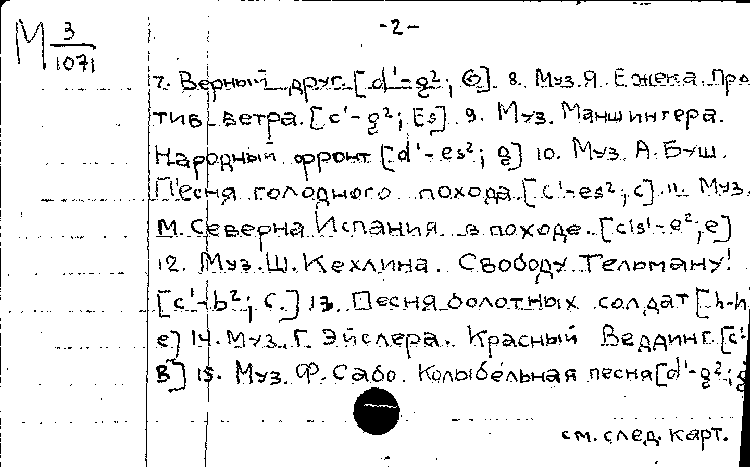 М 3/1071
-2-
7. Верный друг. [d'-g²; G]. 8. Муз. Я. Ежека. Про
тив ветра. [c'-g²; Es] 9. Муз. Маншингера.
Народный фронт [d'-es²; g] 10. Муз. А. Буш.
Песня голодного похода. [c'-es²; c]. 11. Муз.
М. Северна Испания в походе. [cis'-e²; e]
12. Муз. Ш. Кехлина. Свободу Тельману!
[c'-b²; C.] 13. Песня болотных солдат [h-h
e] 14. Муз. Г. Эйслера. Красный Веддинг. [c'
B] 15. Муз. Ф. Сабо. Колыбельная песня [d'-g²; g
см. след. карт.